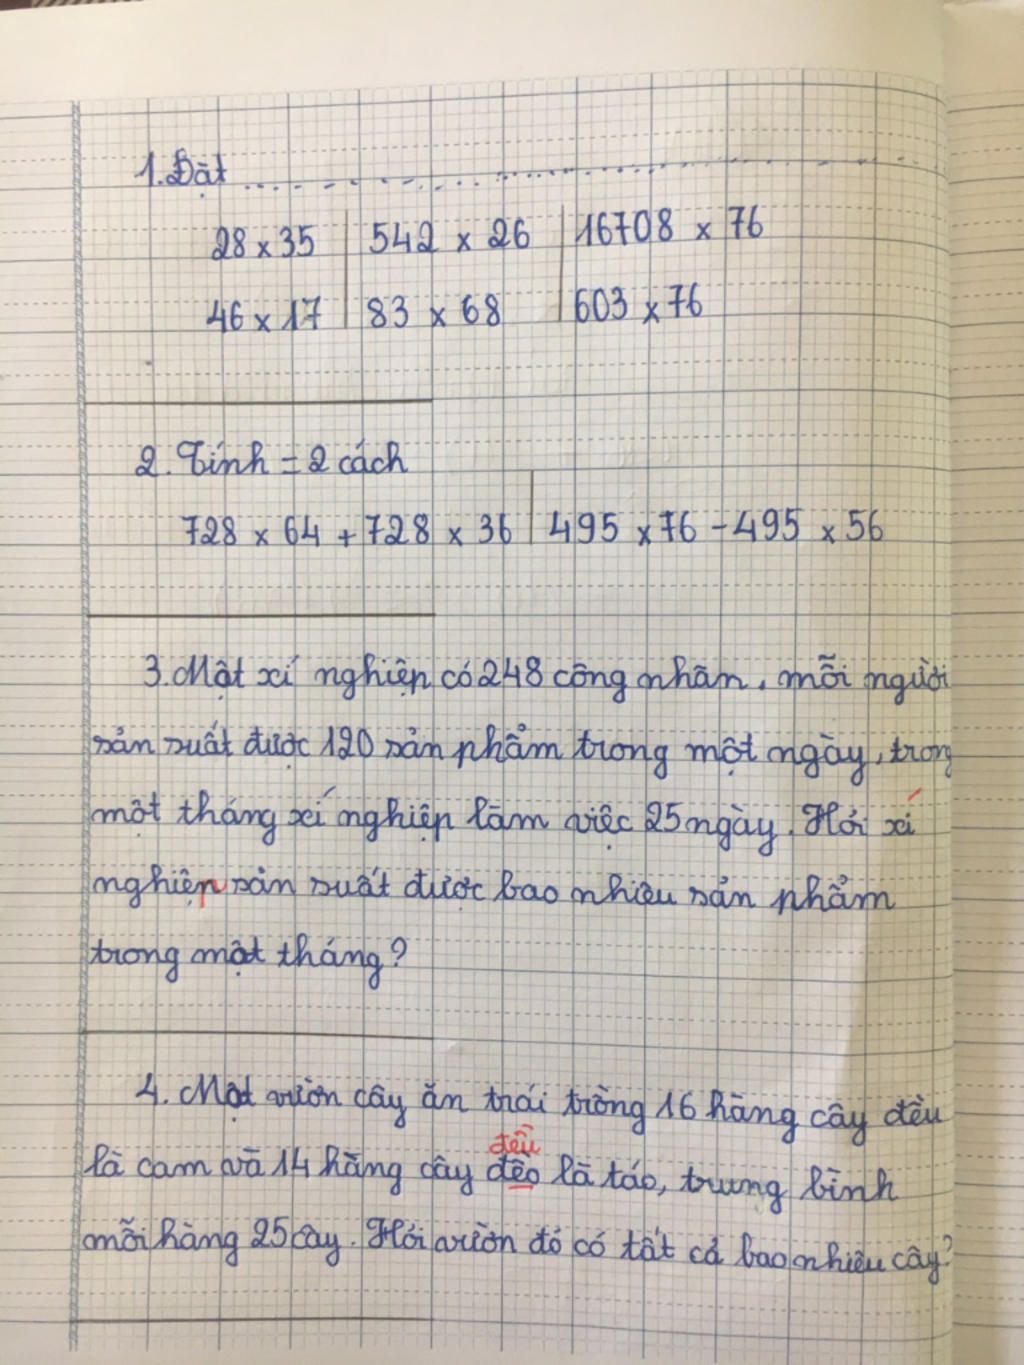 1. Đặt ........................
28 x 35 | 542 x 26 | 16708 x 76
46 x 17 | 83 x 68 | 603 x 76
2. Tính = 2 cách
728 x 64 + 728 x 36 | 495 x 76 - 495 x 56
3. Một xí nghiệp có 248 công nhân, mỗi người
sản suất được 120 sản phẩm trong một ngày, trong
một tháng xí nghiệp làm việc 25 ngày. Hỏi xí
nghiệp sản suất được bao nhiêu sản phẩm
trong một tháng?
4. Một vườn cây ăn trái trồng 16 hàng cây đều
đều
là cam và 14 hàng cây đèo là táo, trung bình
mỗi hàng 25 cây. Hỏi vườn đó có tất cả bao nhiêu cây?